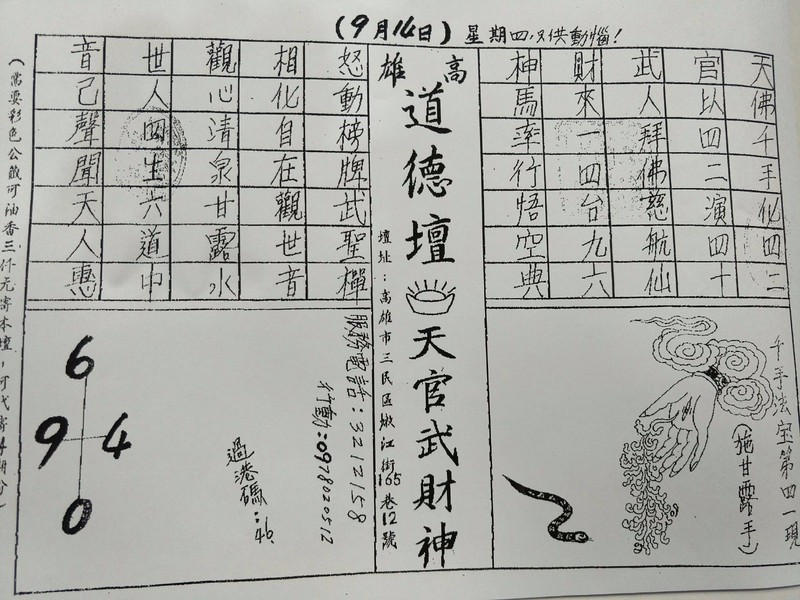 (9月14日) 星期四,只供動惱!
天佛千手化四二
官以四二演四十
武人拜佛慈航仙
財來一四台九六
神馬率行悟空典
千手法宝第四一現
(施甘露手)
高雄
道德壇 天官武財神
壇址:高雄市三民區嫩江街165巷12號
怒動榜牌武聖
相化自在觀世音
觀心清泉甘露水
世人四生六道中
音己聲聞天人惠
服務電話:3212158
行動:0978020512
過港碼:46.
6
9 4
0
(需要彩色公籤可油香三仟元寄本壇,可代寄4期分)